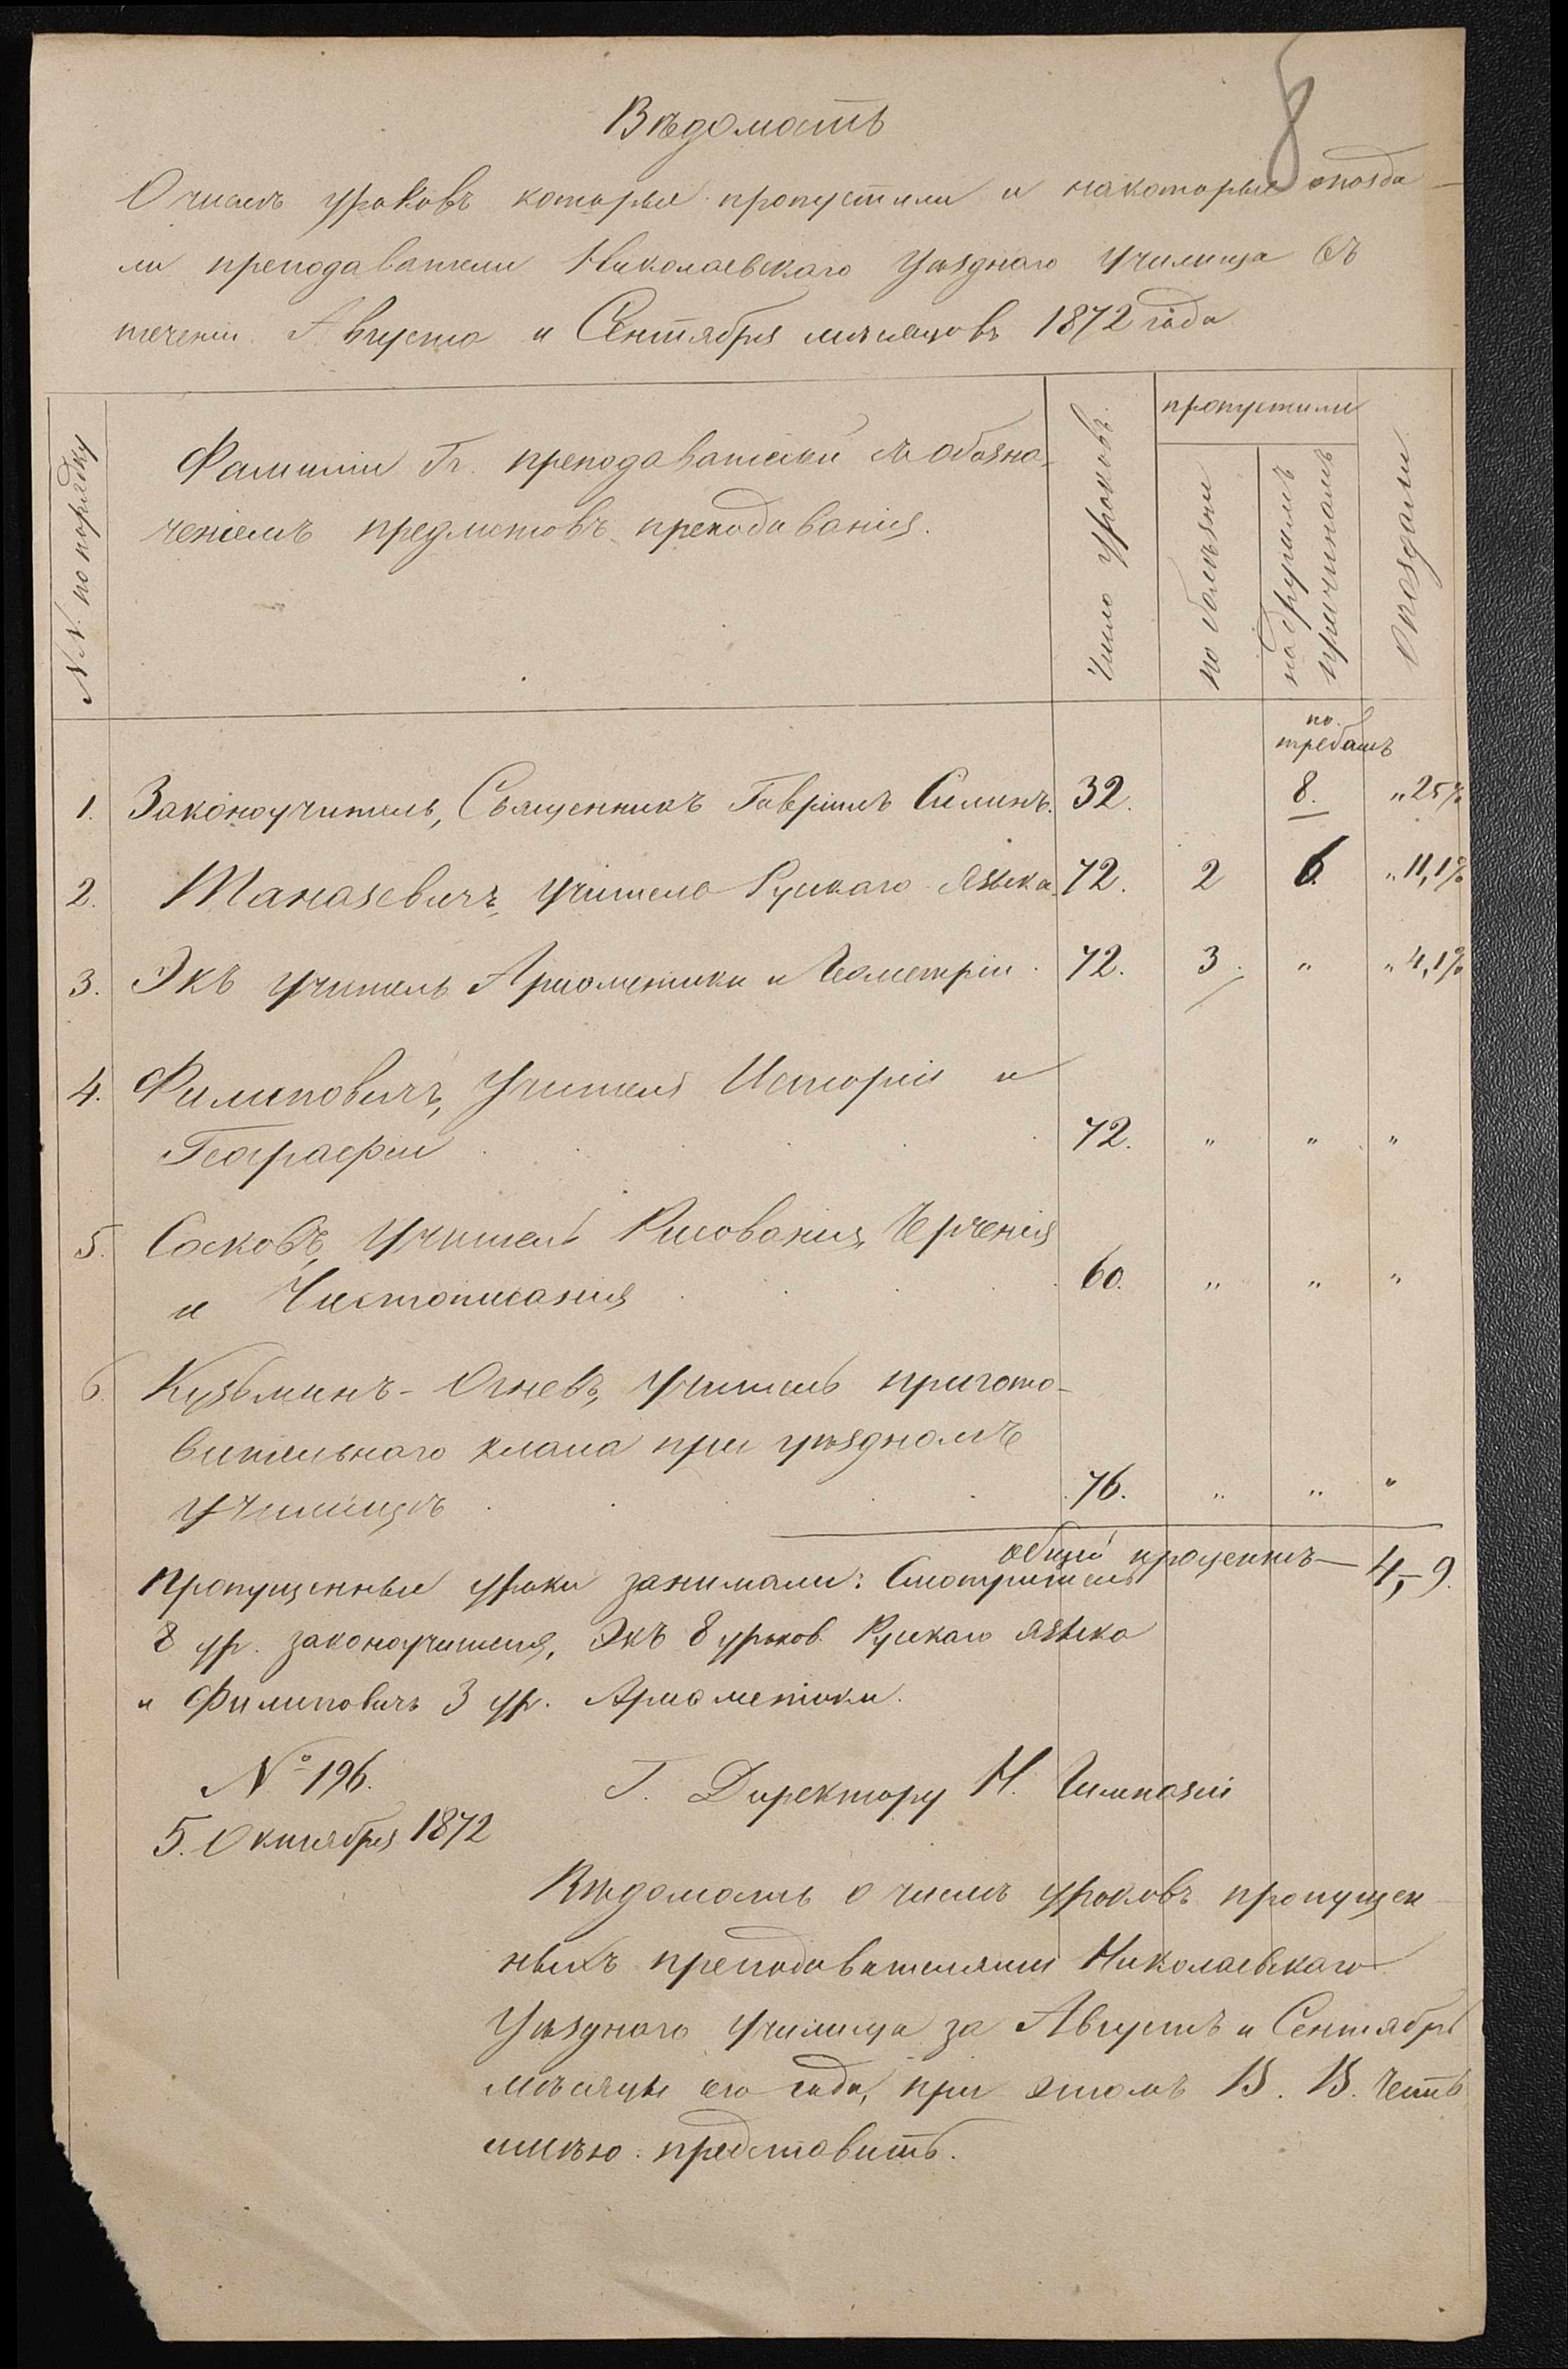 8
Вѣдомость
О числѣ уроковъ которые пропустили и на которые опозда-
ли преподаватели Николаевскаго Уѣзднаго Училища въ
теченіи Августа и Сентября мѣсяцовъ 1872 года
№№ по порядку
Фамиліи Гг. преподавателей съ обозна-
ченіемъ предметовъ преподаванія.
Число уроковъ.
пропустили
по болѣзни
по другимъ причинамъ
Опоздали
по требамъ
1. Законоучитель, Священникъ Гавріилъ Силинъ. 32. 8. „ 25%
2. Таназевичъ, Учитель Рускаго Языка. 72. 2 6. „ 11,1%
3. Экъ Учитель Ариѳметики и Геометріи. 72. 3. „ „ 4,1%
4. Филиповичъ, Учитель Исторіи и
Географіи 72. „ „ „
5. Сосковъ, Учитель Рисованія, Черченія
и Чистописанія 60. „ „ „
6. Кузьминъ-Огневъ, Учитель пригото-
вительнаго класа при уѣздномъ
училищѣ 76. „ „ „
общій процентъ — 4,9.
Пропущенные уроки занимали: Смотритель
8 ур. законоучителя, Экъ 8 уроков. Рускаго языка
и Филиповичъ 3 ур. Ариѳметики.
№ 196.
5. Октября 1872
Г. Директору Н. Гимназіи
Вѣдомость о числѣ уроковъ пропущен-
ныхъ преподавателями Николаевскаго
Уѣзднаго Училища за Августъ и Сентябрь
мѣсяцы сего года, при этомъ В. В. честь
имѣю представить.